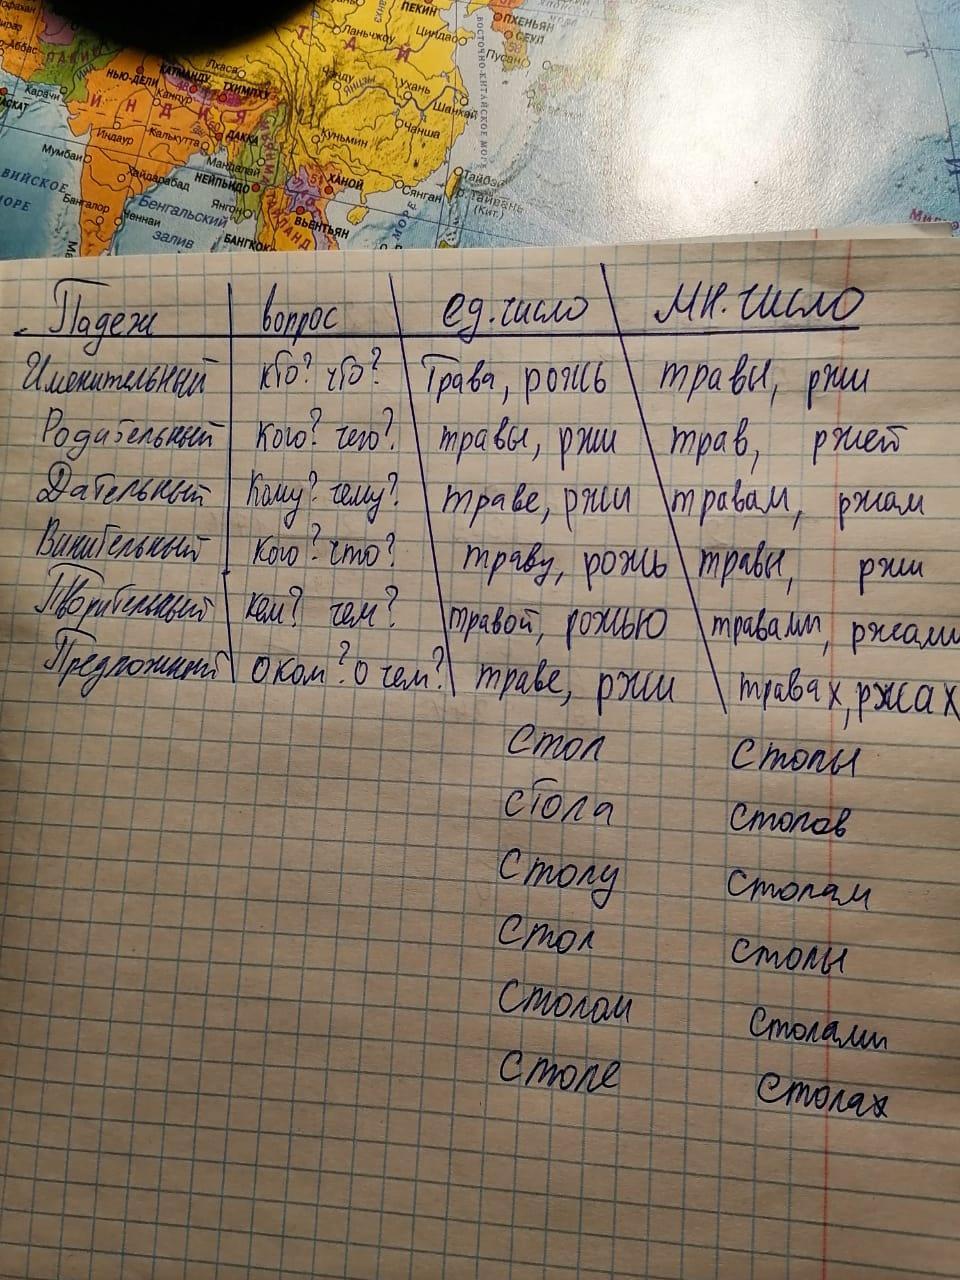 ПЕКИН
ПХЕНЬЯН
СЕУЛ
Пусан
Ланьчжоу
Циндао
ВОСТОЧНО-КИТАЙСКОЕ МОРЕ
Т А Й
Лхаса
Чэнду
Янцзы
Ухань
Шанхай
НЬЮ-ДЕЛИ
КАТМАНДУ
ТХИМПХУ
Карачи
Канпур
Чанша
И Н Д И Я
ДАККА
Куньмин
Индаур
Калькутта
Мумбаи
Мандалай
Хайдарабад
НЕЙПЬИДО
ХАНОЙ
Сянган
Тайбэй
о. Тайвань
(Кит.)
Бангалор
Ченнаи
Бенгальский
залив
Янгон
ВЬЕНТЬЯН
БАНГКОК
ТАИЛАНД
МОРЕ
Падеж вопрос ед. число мн. число
Именительный кто? что? Трава, рожь травы, ржи
Родительный кого? чего? травы, ржи трав, ржей
Дательный Кому? чему? траве, ржи травам, ржам
Винительный кого? что? траву, рожь травы, ржи
Творительный кем? чем? травой, рожью травами, ржами
Предложный о ком? о чем? траве, ржи травах, ржах
Стол Столы
стола Столов
Столу Столам
Стол Столы
Столом Столами
Столе Столах